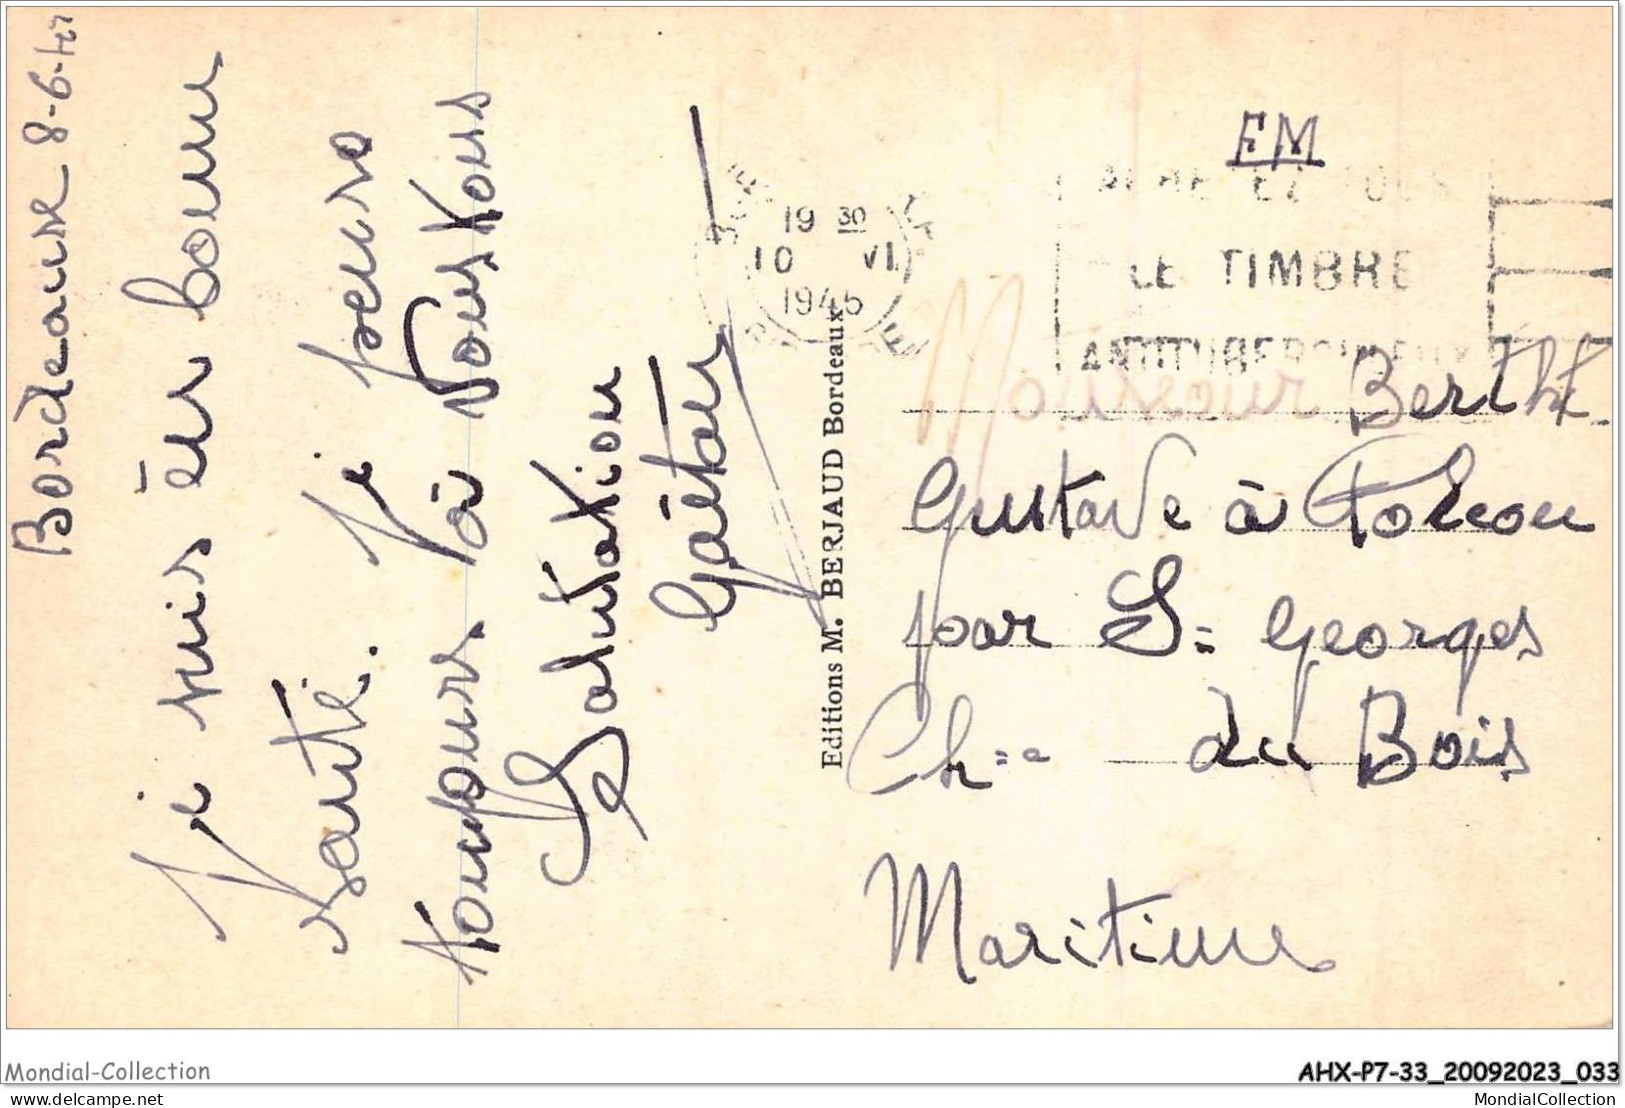 Bordeaux 8-6-45
je suis en bonne
santé. je pense
toujours à vous tous
Salutation
Gaëtan
Editions M. BERJAUD Bordeaux
19 30
10 VI
1945
FM
ACHETEZ TOUS
LE TIMBRE
ANTITUBERCULEUX
Monsieur Berthe
Gustave à
par St Georges
Chte du Bois
Maritime
Mondial-Collection
AHX-P7-33_20092023_033
delcampe.net
MondialCollection